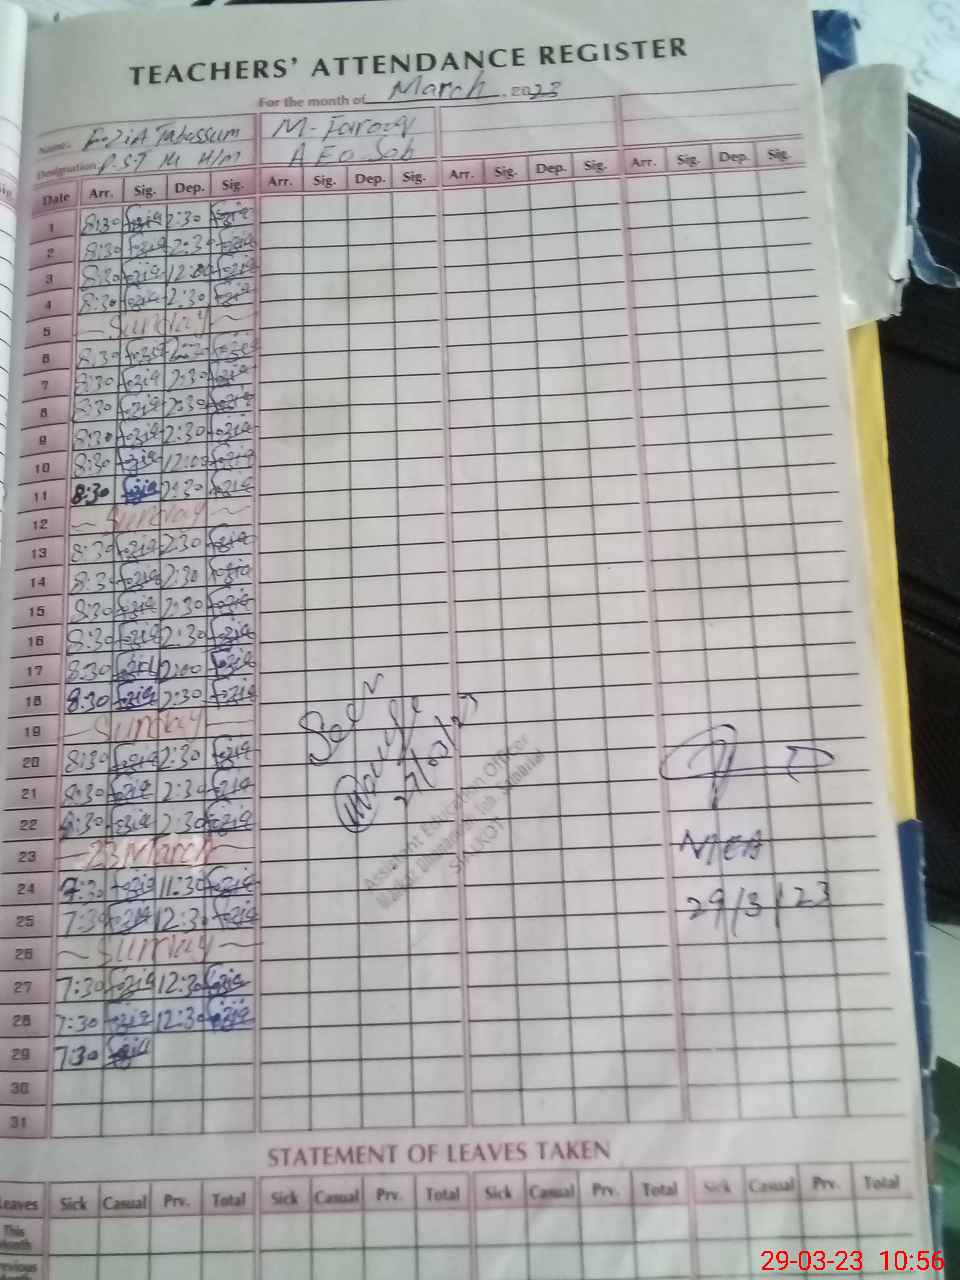 TEACHERS' ATTENDANCE REGISTER
For the month of March, 2023
Name: FoziA Tabassum M. Farooq
Designation: P.S.T H/M A E O Sab
Date Arr. Sig. Dep. Sig. Arr. Sig. Dep. Sig. Arr. Sig. Dep. Sig. Arr. Sig. Dep. Sig.
1 8:30 Fozia 2:30 Fozia
2 8:30 Fozia 2:30 Fozia
3 8:30 Fozia 12:00 Fozia
4 8:30 Fozia 2:30 Fozia
5 Sunday
6 8:30 Fozia 2:30 Fozia
7 8:30 Fozia 2:30 Fozia
8 8:30 Fozia 2:30 Fozia
9 8:30 Fozia 2:30 Fozia
10 8:30 Fozia 12:00 Fozia
11 8:30 Fozia 2:30 Fozia
12 Sunday
13 8:30 Fozia 2:30 Fozia
14 8:30 Fozia 2:30 Fozia
15 8:30 Fozia 2:30 Fozia
16 8:30 Fozia 2:30 Fozia
17 8:30 Fozia 12:00 Fozia
18 8:30 Fozia 2:30 Fozia
19 Sunday
20 8:30 Fozia 2:30 Fozia
21 8:30 Fozia 2:30 Fozia
22 8:30 Fozia 2:30 Fozia
23 23 March
24 7:30 Fozia 11:30 Fozia
25 7:30 Fozia 12:30 Fozia
26 Sunday
27 7:30 Fozia 12:30 Fozia
28 7:30 Fozia 12:30 Fozia
29 7:30 Fozia
30
31
Seen
Assistant Education Officer
SIALKOT
MEA
29/3/23
STATEMENT OF LEAVES TAKEN
Leaves Sick Casual Prv. Total Sick Casual Prv. Total Sick Casual Prv. Total Sick Casual Prv. Total
This Month
Previous
29-03-23 10:56